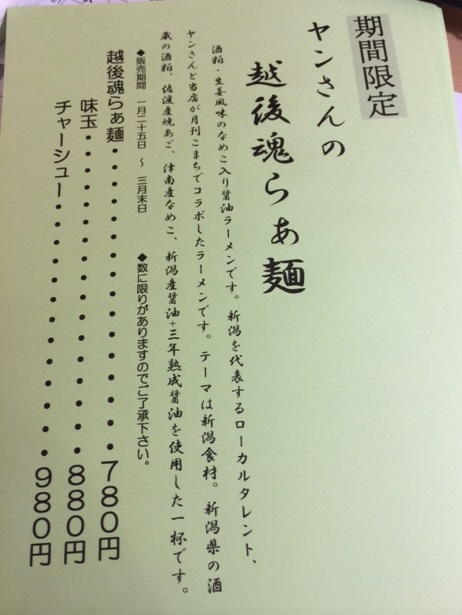 期間限定
ヤンさんの
越後魂らぁ麺
酒粕・生姜風味のなめこ入り醤油ラーメンです。新潟を代表するローカルタレント、
ヤンさんと当店が月刊こまちでコラボしたラーメンです。テーマは新潟食材。新潟県の酒
蔵の酒粕、佐渡産焼あご、津南産なめこ、新潟産醤油+三年熟成醤油を使用した一杯です。
◆販売期間 一月二十五日 〜 三月末日 ◆数に限りがありますのでご了承下さい。
越後魂らぁ麺・・・・・・・・・・・・・780円
味玉・・・・・・・・・・・・・・・・・880円
チャーシュー・・・・・・・・・・・・・980円